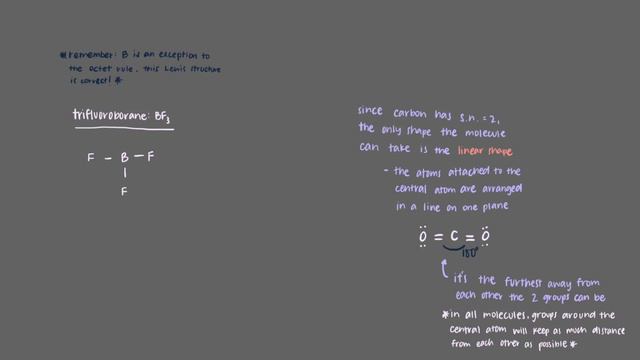 *remember: B is an exception to
the octet rule, this Lewis structure
is correct! *
trifluoroborane: BF₃
F - B - F
|
F
since carbon has s.n. = 2,
the only shape the molecule
can take is the linear shape
- the atoms attached to the
central atom are arranged
in a line on one plane
O = C = O
180°
it's the furthest away from
each other the 2 groups can be
*in all molecules, groups around the
central atom will keep as much distance
from each other as possible *